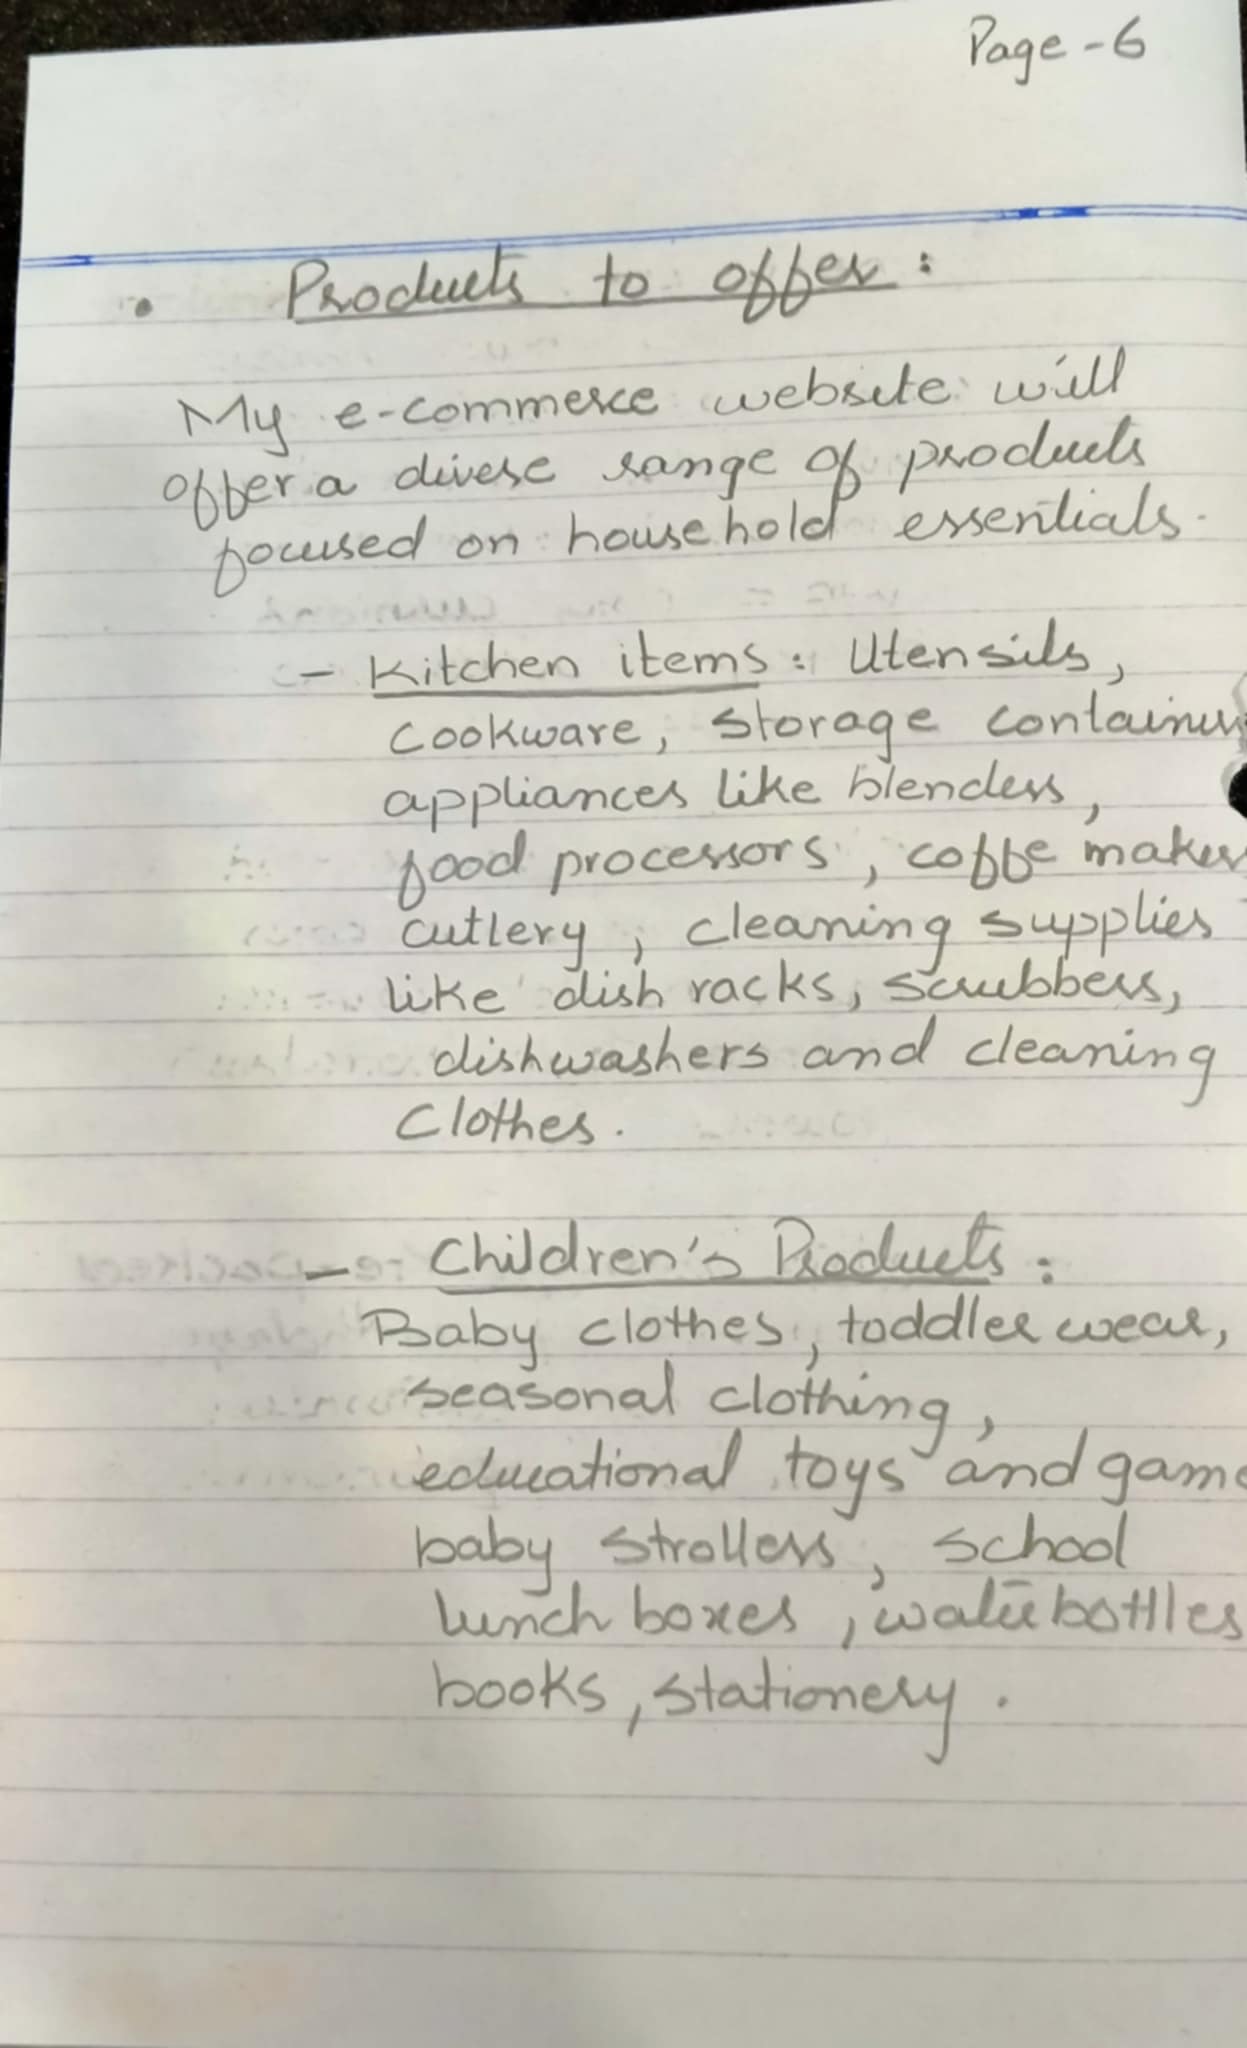 Page - 6
• Products to offer :
My e-commerce website will
offer a divese range of products
focused on household essentials.
- Kitchen items : Utensils,
Cookware, Storage container
appliances like blenders,
food processors, coffe maker
cutlery, cleaning supplies
like dish racks, scrubbers,
dishwashers and cleaning
Clothes.
- Children's Products :
Baby clothes, toddler wear,
seasonal clothing,
educational toys and game
baby strollers, school
lunch boxes, water bottles
books, stationery.